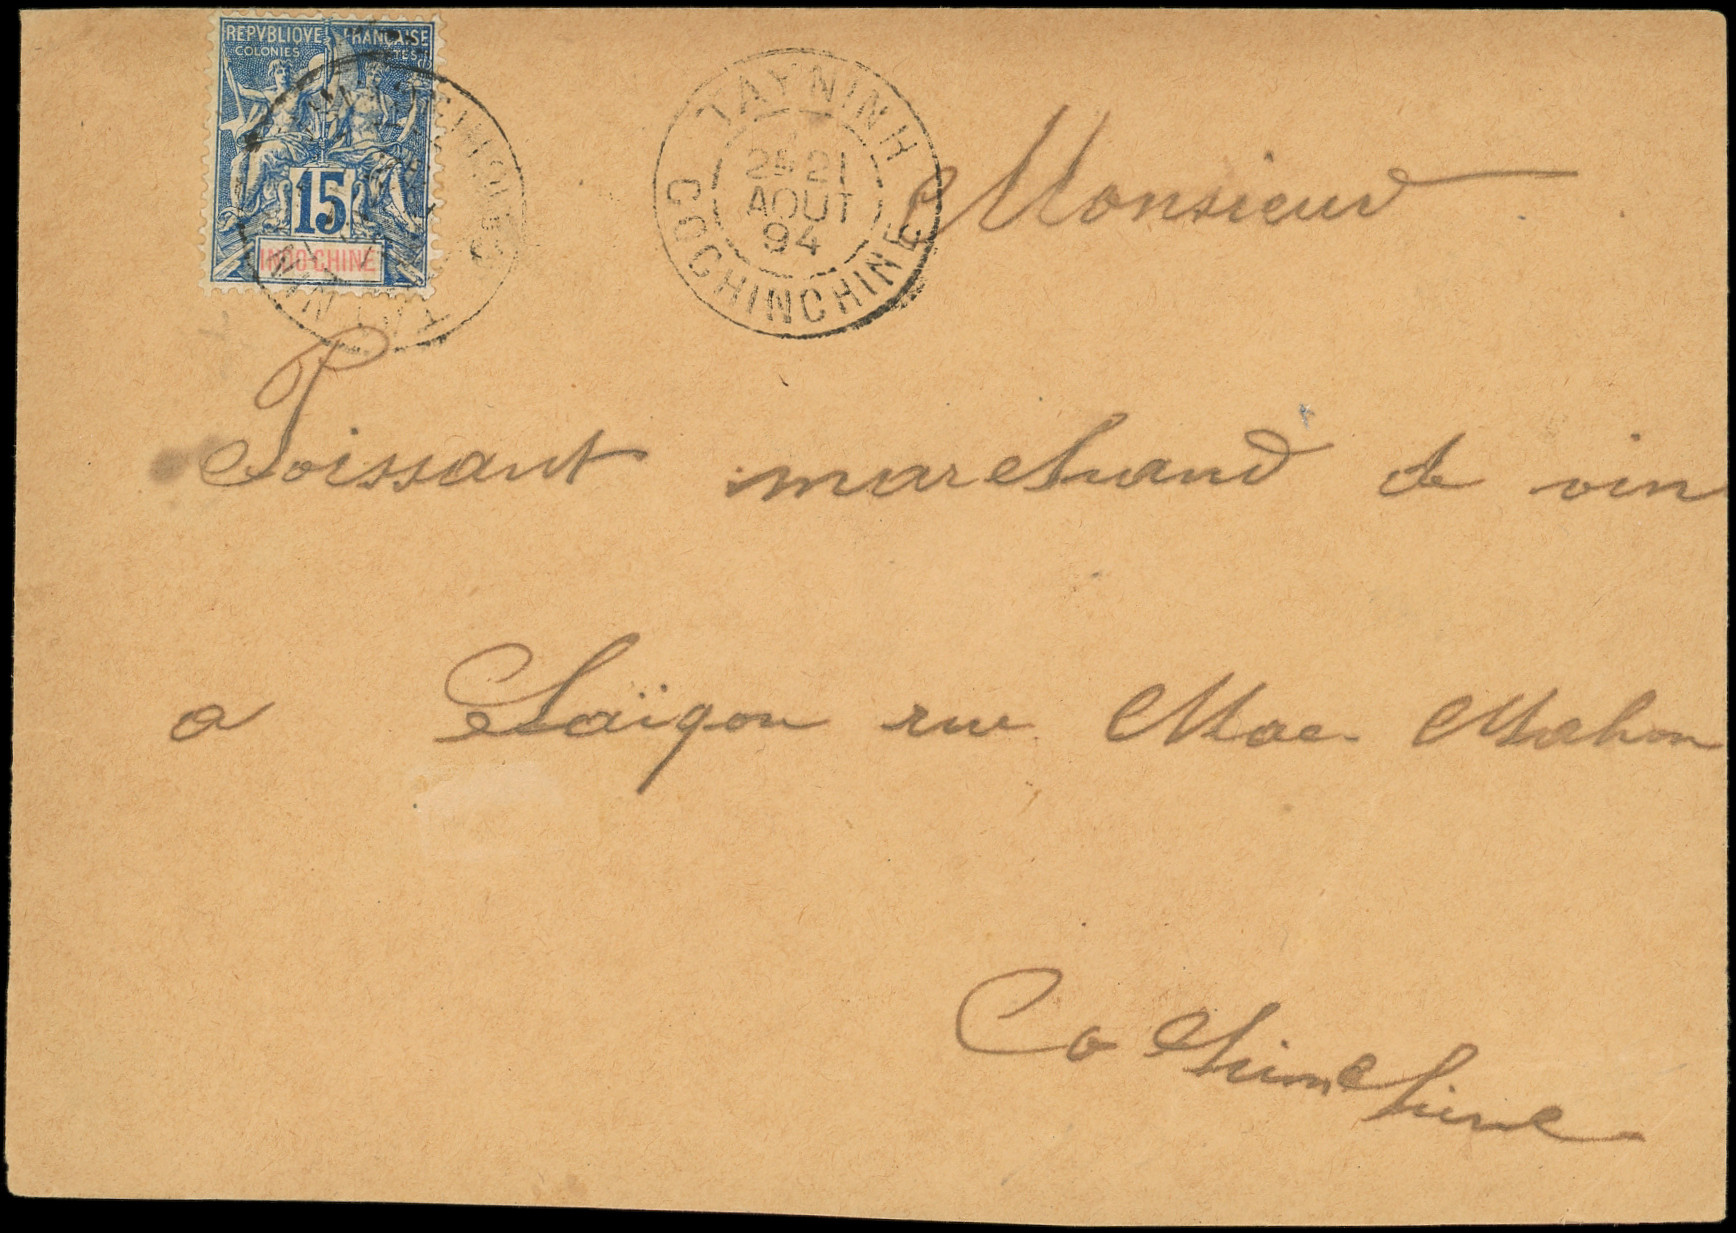 REPVBLIQVE FRANÇAISE
COLONIES
15
INDO-CHINE
TAYNINH
2E 21
AOUT
94
COCHINCHINE
Monsieur
Poissant marchand de vin
a Saïgon rue Mac-Mahon
Cochinchine